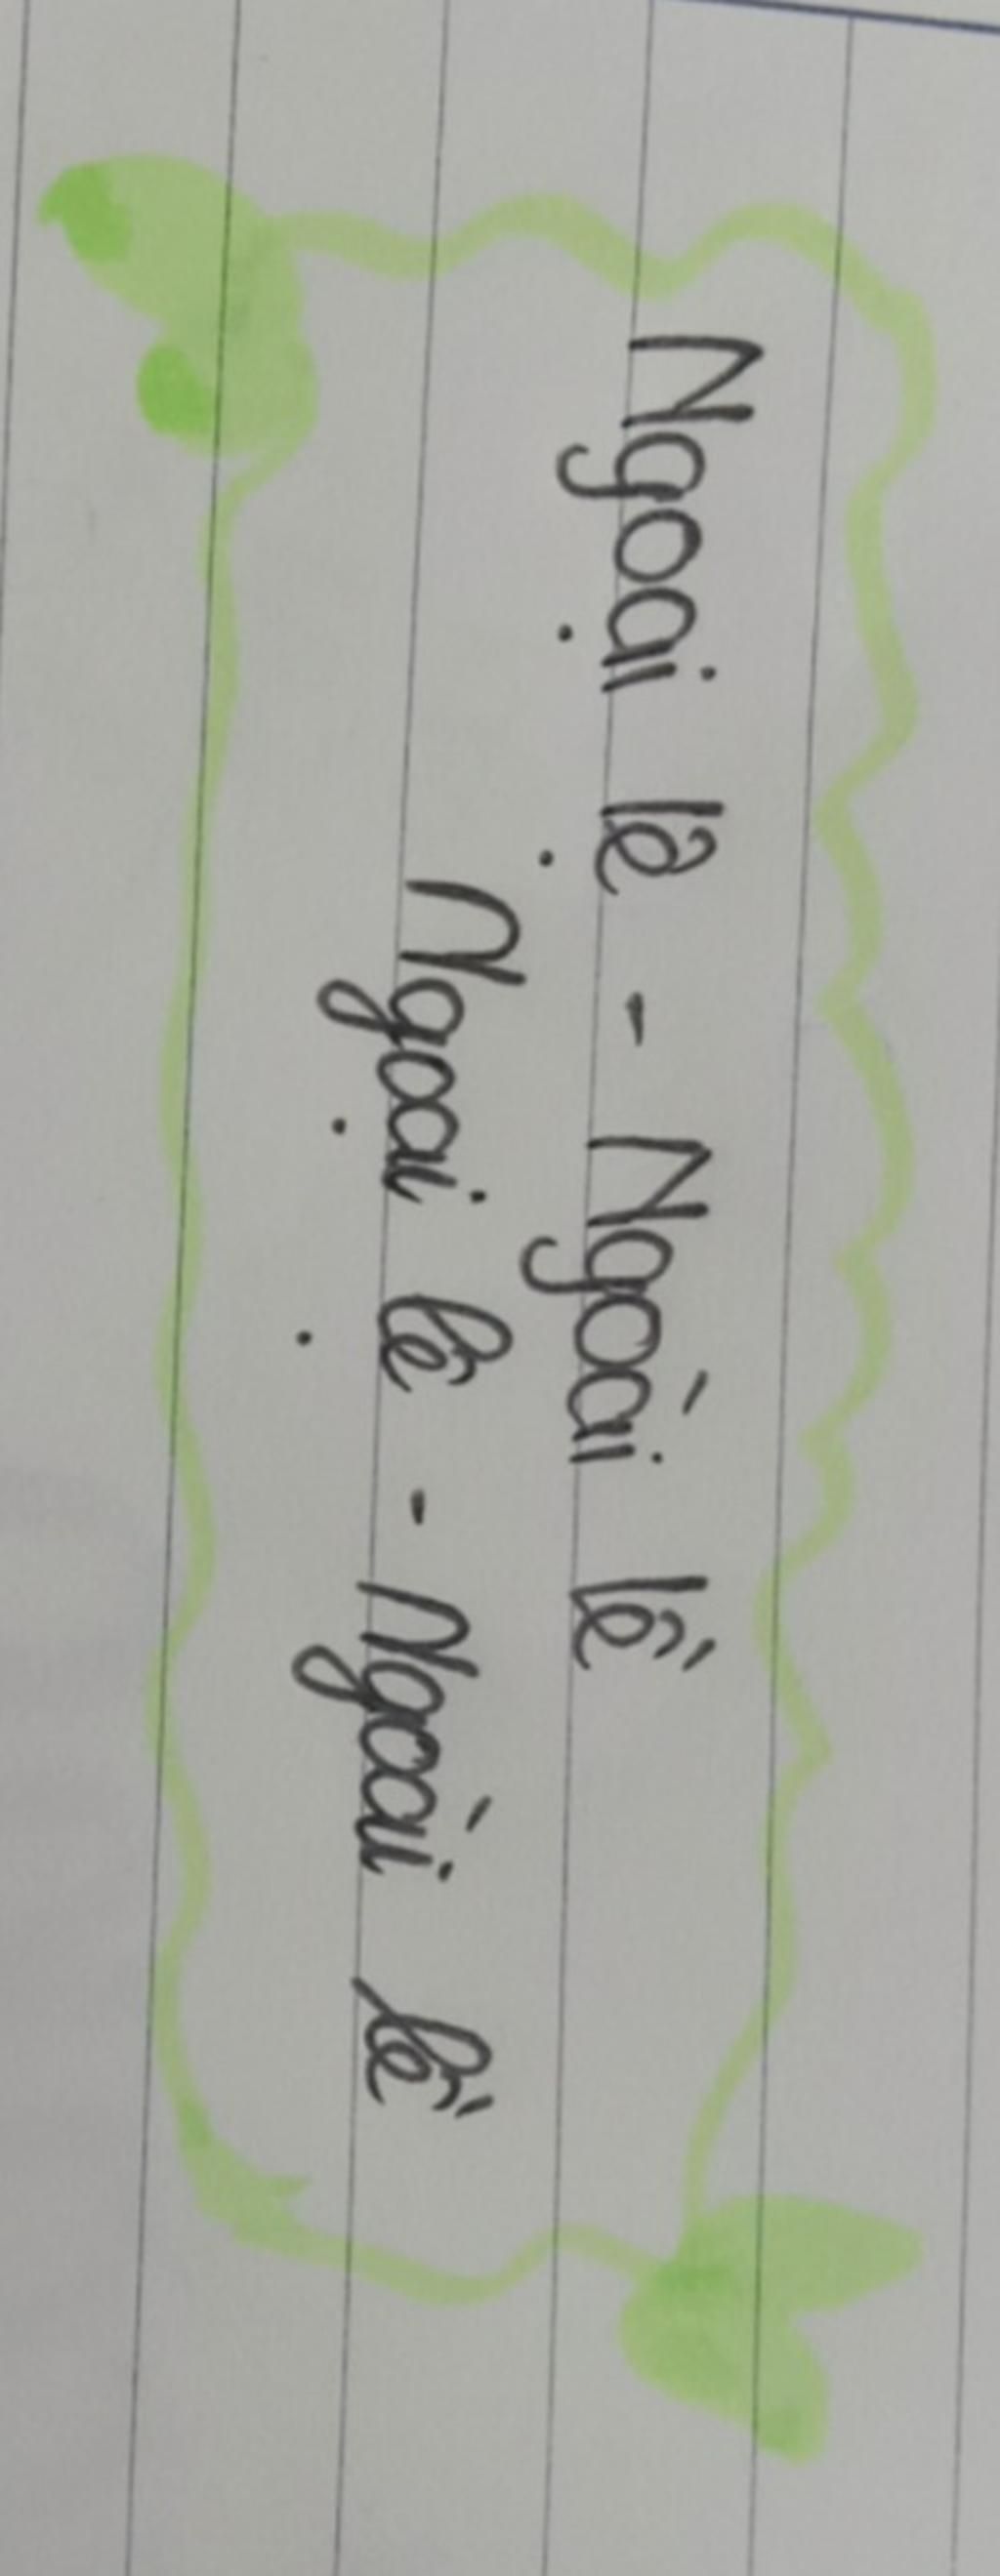 Ngoại lệ - Ngoài lề
Ngoại lệ - Ngoài lề